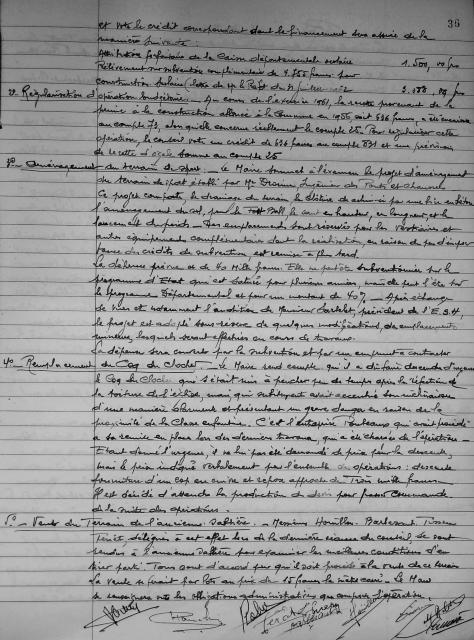 36
et vote le crédit correspondant dont le financement sera assuré de la
manière suivante
Attribution forfaitaire de la Caisse départementale scolaire 1.500,00 frs
Prélèvement sur subvention complémentaire de francs pour
construction scolaire lettre de Mr le Préfet du
2°- Régularisation d'opération budgétaire. - Au cours de l'exercice 1961, la recette provenant de la
prime à la construction allouée à la Commune en soit 636 francs, a été
au compte 79, alors qu'elle concerne réellement le compte. Pour régulariser cette
opération, le conseil vote un crédit de 636 francs au compte et une prévision
de recette d'égale somme au compte
3°- Aménagement du terrain de sport. - Le Maire soumet à l'examen le projet d'aménagement
du terrain de sport établi par Mr Ingénieur des Ponts et Chaussées
Ce projet comporte le drainage du terrain, la clôture
l'aménagement du sol, pour le Foot Ball, le saut en hauteur, en longueur, et le
lancement du poids. Des emplacements sont réservés pour les vestiaires et
autres équipements complémentaires dont la réalisation, en raison du peu d'impor
tance des crédits de subvention, est remise à plus tard.
La dépense prévue est de 40 Mille francs. Elle ne peut être subventionnée sur le
programme d'Etat qui est saturé pour plusieurs années, mais elle peut l'être sur
le programme Départemental et pour un montant de 40%. - Après échange
de vues et notamment l'audition de Monsieur président de l'
le projet est adopté sous réserve de quelques modifications, de emplacements
lesquels seront effectués en cours de travaux.
La dépense sera couverte par la subvention et par un emprunt à contracter
4°- Remplacement du Coq du Clocher. - Le Maire rend compte qu'il a dû faire descendre d'urgence
le Coq du Clocher qui s'était mis à pencher peu de temps après la réfection de
la toiture de l'église, mais qui subitement avait accentué son inclinaison
d'une manière alarmante et présentant un grave danger en raison de la
proximité de la Classe enfantine. C'est l'entreprise qui avait procédé
à sa remise en place lors des derniers travaux, qui a été chargée de l'opération -
Etant donné l'urgence, il ne lui a pas été demandé de prix pour la descente,
mais le prix indiqué verbalement pour l'ensemble des opérations : descente
fourniture d'un coq en cuivre et repose approche de Trois mille francs.
Il est décidé d'attendre la production de devis pour passer commande
de la suite des opérations.
5°- Vente du Terrain de l'ancienne Sablière. - Messieurs
délégués à cet effet lors de la dernière séance du conseil, se sont
rendus à l'ancienne sablière pour examiner les meilleures conditions d'en
tirer parti. Tous sont d'accord pour qu'il soit procédé à la vente de ce terrain
La vente se ferait par lots au prix de 15 francs le mètre carré. Le Maire
se renseignera sur les obligations administratives que comporte l'opération.